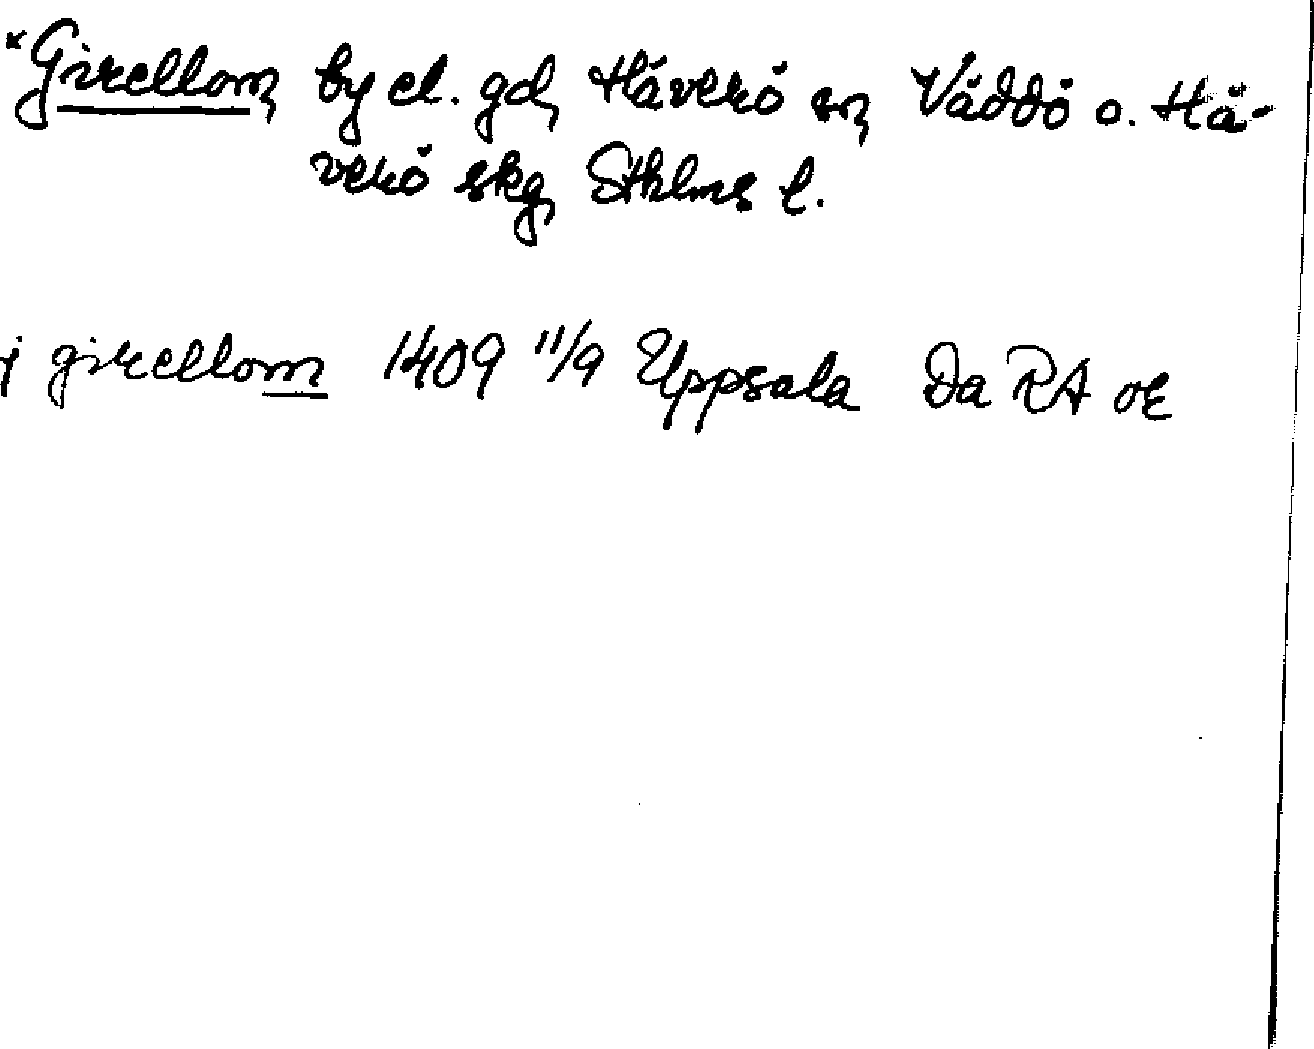 *Girellom, by el. gd, Häverö sn, Väddö o. Hä-
verö skg, Sthlms l.
j girellom 1409 11/9 Uppsala Da RA oE